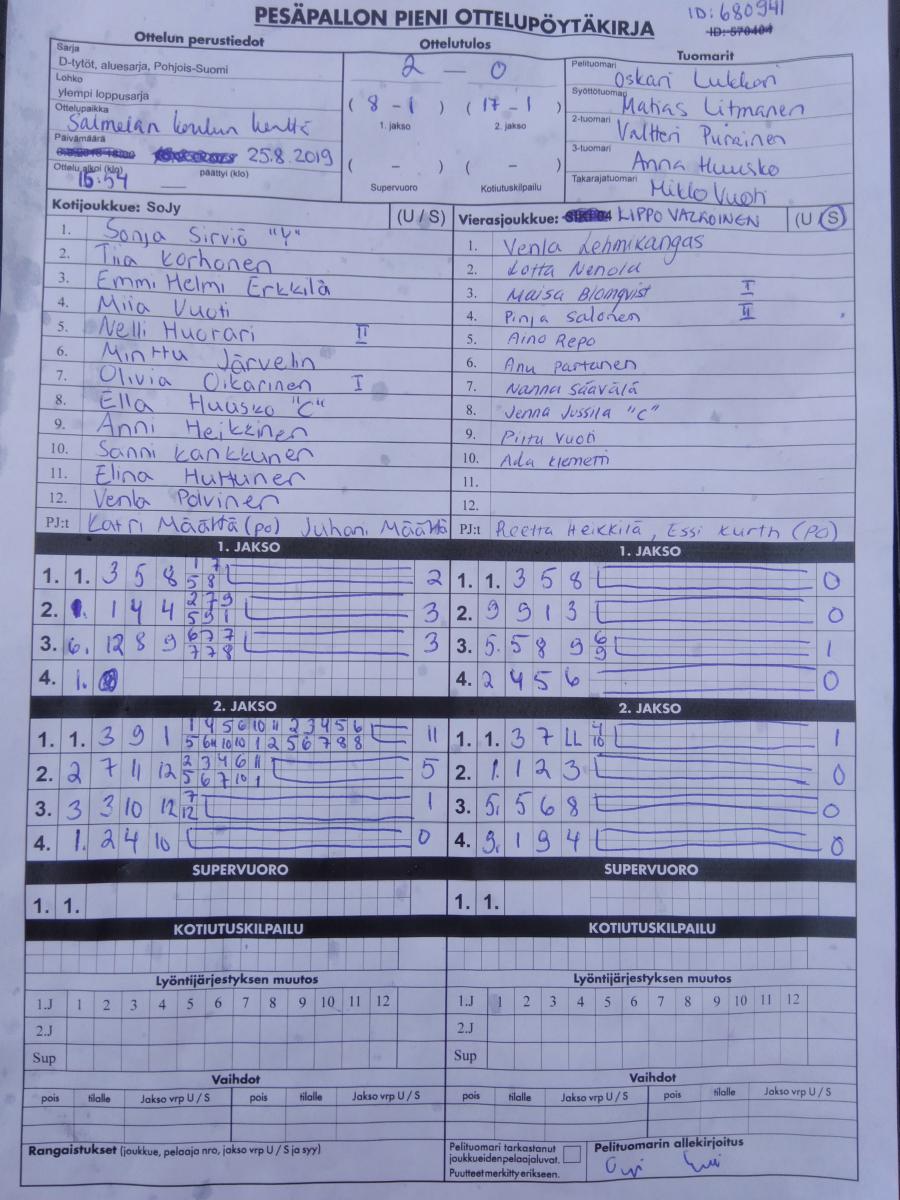 PESÄPALLON PIENI OTTELUPÖYTÄKIRJA
ID: 680941
ID: 570404
Ottelun perustiedot
Ottelutulos
Tuomarit
Sarja
D-tytöt, aluesarja, Pohjois-Suomi
Lohko
ylempi loppusarja
Ottelupaikka
Salmelan koulun kenttä
Päivämäärä
25.8.2019
Ottelu alkoi (klo)
päättyi (klo)
16:54
2 — 0
( 8 - 1 ) ( 17 - 1 )
1. jakso 2. jakso
( - ) ( - )
Supervuoro Kotiutuskilpailu
Pelituomari
Oskari Lukkari
Syöttötuomari
Matias Litmanen
2-tuomari
Valtteri Puirainen
3-tuomari
Anna Huusko
Takarajatuomari
Mikko Vuoti
Kotijoukkue: SoJy (U / S)
1. Sonja Sirviö "V"
2. Tiia Korhonen
3. Emmi Helmi Erkkilä
4. Miia Vuoti
5. Nelli Huorari II
6. Minttu Järvelin
7. Olivia Oikarinen I
8. Ella Huusko "C"
9. Anni Heikkinen
10. Sanni Kankkunen
11. Elina Huttunen
12. Venla Polvinen
PJ:t Katri Määttä (PO) Juhani Määttä
Vierasjoukkue: LIPPO VALKOINEN (U / S)
1. Venla Lehmikangas
2. Lotta Nenola
3. Maisa Blomqvist I
4. Pinja Salonen II
5. Aino Repo
6. Anu Partanen
7. Nanna Säävälä
8. Jenna Jussila "C"
9. Piitu Vuoti
10. Ada Klemetti
11.
12.
PJ:t Reetta Heikkilä, Essi Kurth (PO)
1. JAKSO
1. 1. 3 5 8 1 7 2
5 8
2. 1. 1 4 4 2 7 9 3
5 9 1
3. 6. 12 8 9 6 7 7 3
7 7 8
4. 1.
1. JAKSO
1. 1. 3 5 8 0
2. 9 9 1 3 0
3. 5. 5 8 9 6 1
9
4. 2 4 5 6 0
2. JAKSO
1. 1. 3 9 1 1 4 5 6 10 11 2 3 4 5 6 11
5 6 11 10 10 1 2 5 6 7 8 8
2. 2 7 11 12 2 3 4 6 11 5
5 6 7 10 1
3. 3 3 10 12 7 1
12
4. 1. 2 4 10 0
2. JAKSO
1. 1. 3 7 LL 4 1
10
2. 1. 1 2 3 0
3. 5. 5 6 8 0
4. 9. 1 9 4 0
SUPERVUORO
1. 1.
SUPERVUORO
1. 1.
KOTIUTUSKILPAILU
KOTIUTUSKILPAILU
Lyöntijärjestyksen muutos
1.J 1 2 3 4 5 6 7 8 9 10 11 12
2.J
Sup
Lyöntijärjestyksen muutos
1.J 1 2 3 4 5 6 7 8 9 10 11 12
2.J
Sup
Vaihdot
pois tilalle Jakso vrp U / S pois tilalle Jakso vrp U / S
Vaihdot
pois tilalle Jakso vrp U / S pois tilalle Jakso vrp U / S
Rangaistukset (joukkue, pelaaja nro, jakso vrp U / S ja syy)
Pelituomari tarkastanut
joukkueiden pelaajaluvat.
Puutteet merkitty erikseen.
Pelituomarin allekirjoitus